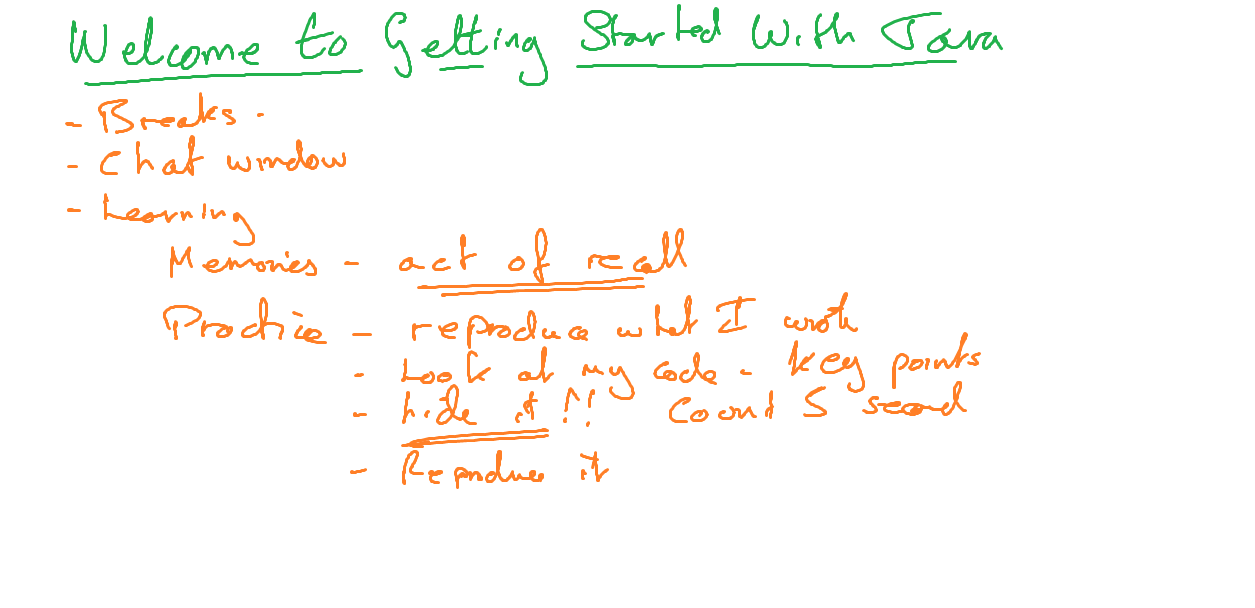 Welcome to Getting Started With Java
- Breaks.
- Chat window
- Learning
Memories - act of recall
Practice - reproduce what I wrote
- Look at my code - key points
- hide it !! Count 5 second
- Reproduce it